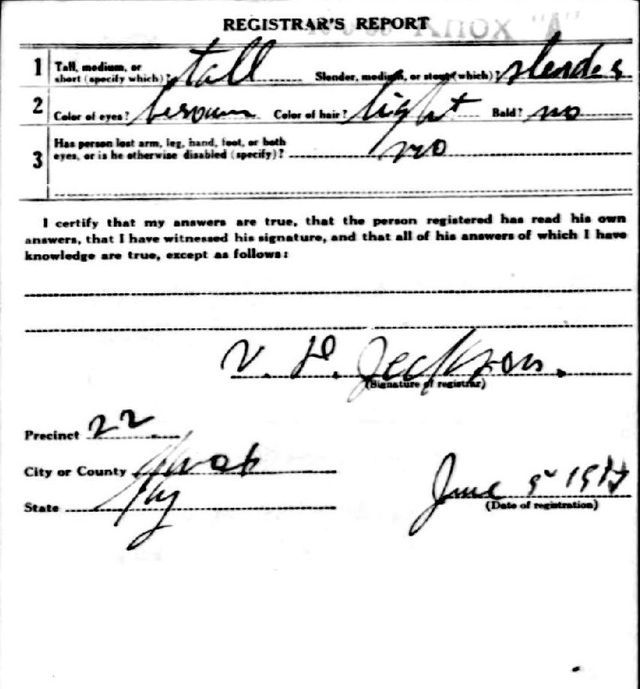 REGISTRAR'S REPORT
1 Tall, medium, or short (specify which)? tall Slender, medium, or stout (which)? slender
2 Color of eyes? brown Color of hair? light Bald? no
3 Has person lost arm, leg, hand, foot, or both eyes, or is he otherwise disabled (specify)? no
I certify that my answers are true, that the person registered has read his own
answers, that I have witnessed his signature, and that all of his answers of which I have
knowledge are true, except as follows:
V. D. Jeckson.
(Signature of registrar)
Precinct 22
City or County Knox
State Ky
June 5 1917
(Date of registration)